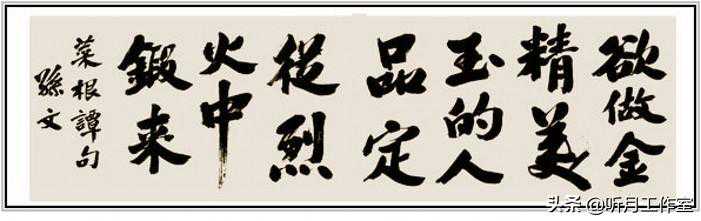 欲做金
精美
玉的人
品定
從烈
火中
鍛来
菜根譚句
孫文
头条 @听月工作室